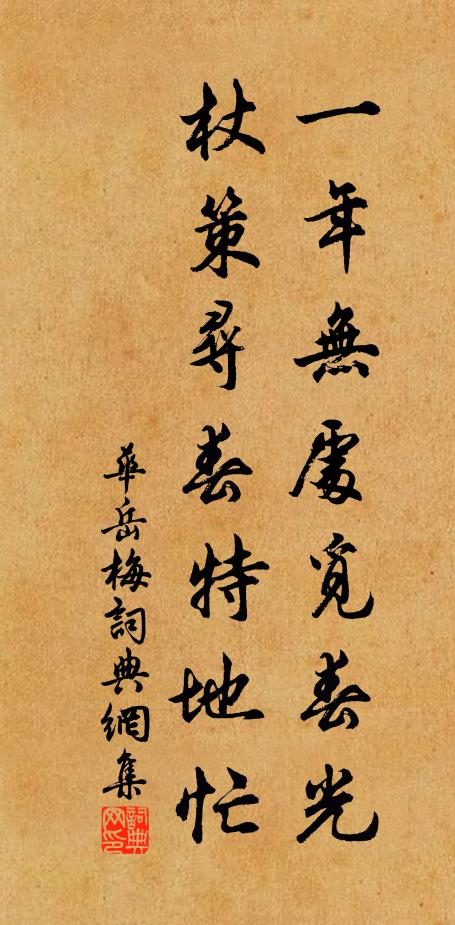 一年無處覓春光
杖策尋春特地忙
華岳梅詞典網集
詞典网印